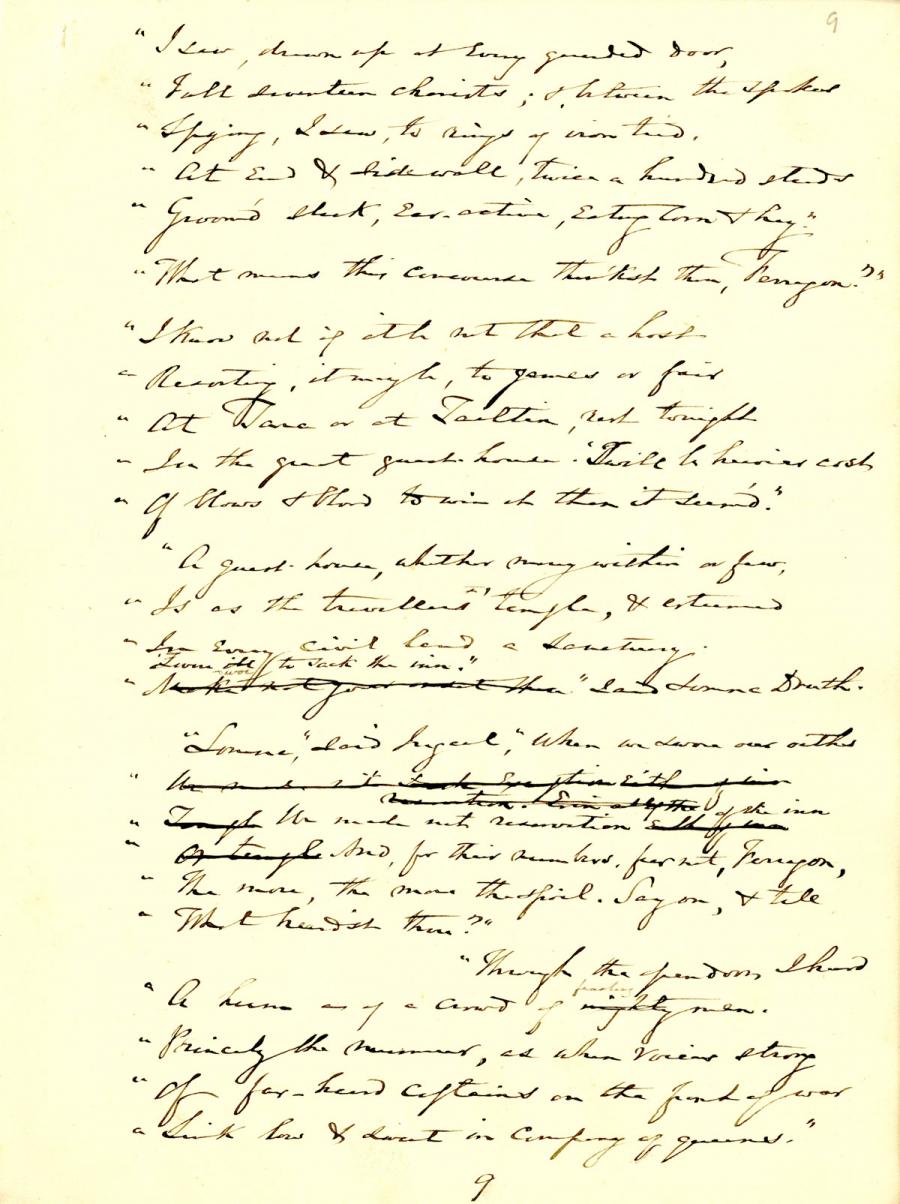 9
"I saw, drawn up at Every guarded door,
"Full seventeen chariots; & between the spokes
"Spying, I saw, to rings of iron tied.
"At End & Sidewall, twice a hundred steeds
"Groom'd sleek, Ear-active, Eating corn & hay."
"What means this concourse think'st thou, Ferragon?"
"I Know not if it be not that a host
"Resorting, it might be, to games or fair
"At Tara or at Tailtin, rest tonight
"In the great guest-house. 'Twill be heavier cost
"Of blows & blood to win it than it seem'd."
"A guest-house, whether many within or few,
"Is as the traveller's temple, & esteemed
"In Every civil land a sanctuary.
'Twere woe to sack the inn."
"Make not your onset then" Said Lomna Druth.
"Lomna", Said Ingcel, "When we swore our oaths
"We made not Exception Either of inn
reservation. of the inn
"Temple We made not reservation
"Or temple And, for their numbers, fear not, Ferragon,
"The more, the more the spoil. Say on, & tell
"What heard'st thou?"
"Through the open doors I heard
peaceful
"A hum as of a crowd of mighty men.
"Princely the murmur, as when voices strong
"Of far-heard captains on the front of war
"Sink low & sweet in company of queens."
9